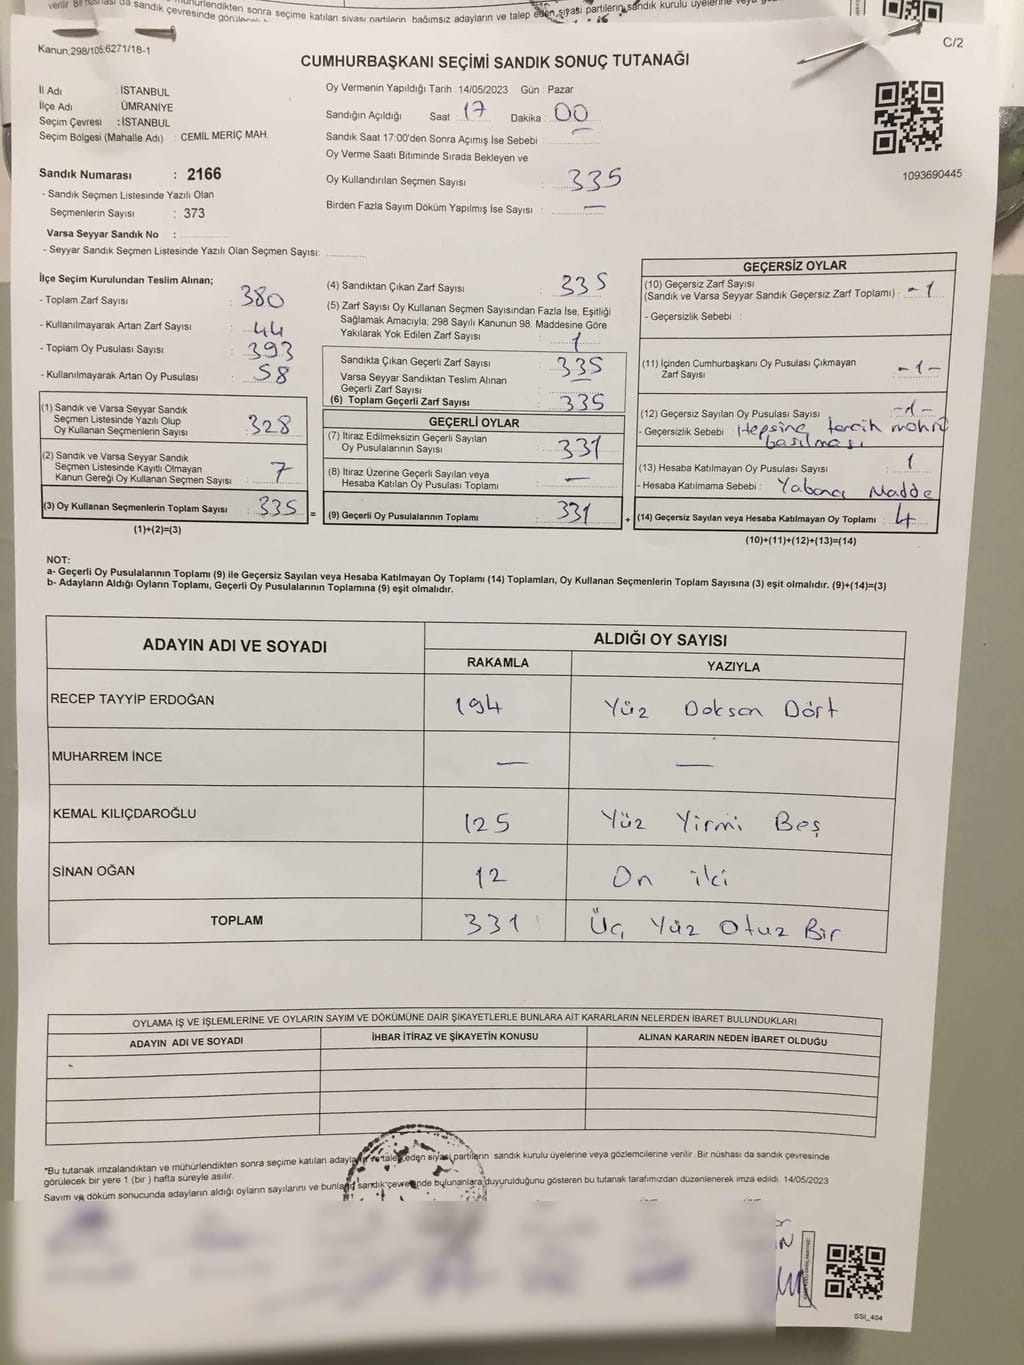 Kanun,298/105,6271/18-1
C/2
CUMHURBAŞKANI SEÇİMİ SANDIK SONUÇ TUTANAĞI
İl Adı : İSTANBUL
İlçe Adı : ÜMRANİYE
Seçim Çevresi : İSTANBUL
Seçim Bölgesi (Mahalle Adı) : CEMİL MERİÇ MAH.
Sandık Numarası : 2166
- Sandık Seçmen Listesinde Yazılı Olan
Seçmenlerin Sayısı : 373
Varsa Seyyar Sandık No :
- Seyyar Sandık Seçmen Listesinde Yazılı Olan Seçmen Sayısı:
Oy Vermenin Yapıldığı Tarih : 14/05/2023 Gün : Pazar
Sandığın Açıldığı Saat : 17 Dakika : 00
Sandık Saat 17:00'den Sonra Açımış İse Sebebi :
Oy Verme Saati Bitiminde Sırada Bekleyen ve
Oy Kullandırılan Seçmen Sayısı : 335
Birden Fazla Sayım Döküm Yapılmış İse Sayısı : —
1093690445
İlçe Seçim Kurulundan Teslim Alınan;
- Toplam Zarf Sayısı : 380
- Kullanılmayarak Artan Zarf Sayısı : 44
- Toplam Oy Pusulası Sayısı : 393
- Kullanılmayarak Artan Oy Pusulası : 58
(1) Sandık ve Varsa Seyyar Sandık
Seçmen Listesinde Yazılı Olup
Oy Kullanan Seçmenlerin Sayısı : 328
(2) Sandık ve Varsa Seyyar Sandık
Seçmen Listesinde Kayıtlı Olmayan
Kanun Gereği Oy Kullanan Seçmen Sayısı : 7
(3) Oy Kullanan Seçmenlerin Toplam Sayısı : 335 =
(1)+(2)=(3)
(4) Sandıktan Çıkan Zarf Sayısı : 335
(5) Zarf Sayısı Oy Kullanan Seçmen Sayısından Fazla İse, Eşitliği
Sağlamak Amacıyla; 298 Sayılı Kanunun 98. Maddesine Göre
Yakılarak Yok Edilen Zarf Sayısı : 1
Sandıkta Çıkan Geçerli Zarf Sayısı : 335
Varsa Seyyar Sandıktan Teslim Alınan
Geçerli Zarf Sayısı : —
(6) Toplam Geçerli Zarf Sayısı : 335
GEÇERLİ OYLAR
(7) İtiraz Edilmeksizin Geçerli Sayılan
Oy Pusulalarının Sayısı : 331
(8) İtiraz Üzerine Geçerli Sayılan veya
Hesaba Katılan Oy Pusulası Toplamı : —
(9) Geçerli Oy Pusulalarının Toplamı : 331 +
GEÇERSİZ OYLAR
(10) Geçersiz Zarf Sayısı
(Sandık ve Varsa Seyyar Sandık Geçersiz Zarf Toplamı) : - 1
- Geçersizlik Sebebi :
(11) İçinden Cumhurbaşkanı Oy Pusulası Çıkmayan
Zarf Sayısı : - 1 -
(12) Geçersiz Sayılan Oy Pusulası Sayısı : -1-
- Geçersizlik Sebebi : Hepsine tercih mührü
basılması
(13) Hesaba Katılmayan Oy Pusulası Sayısı : 1
- Hesaba Katılmama Sebebi : Yabancı Madde
(14) Geçersiz Sayılan veya Hesaba Katılmayan Oy Toplamı : 4
(10)+(11)+(12)+(13)=(14)
NOT:
a- Geçerli Oy Pusulalarının Toplamı (9) ile Geçersiz Sayılan veya Hesaba Katılmayan Oy Toplamı (14) Toplamları, Oy Kullanan Seçmenlerin Toplam Sayısına (3) eşit olmalıdır. (9)+(14)=(3)
b- Adayların Aldığı Oyların Toplamı, Geçerli Oy Pusulalarının Toplamına (9) eşit olmalıdır.
ADAYIN ADI VE SOYADI
ALDIĞI OY SAYISI
RAKAMLA YAZIYLA
RECEP TAYYİP ERDOĞAN 194 Yüz Doksan Dört
MUHARREM İNCE — —
KEMAL KILIÇDAROĞLU 125 Yüz Yirmi Beş
SİNAN OĞAN 12 On iki
TOPLAM 331 Üç Yüz Otuz Bir
OYLAMA İŞ VE İŞLEMLERİNE VE OYLARIN SAYIM VE DÖKÜMÜNE DAİR ŞİKAYETLERLE BUNLARA AİT KARARLARIN NELERDEN İBARET BULUNDUKLARI
ADAYIN ADI VE SOYADI İHBAR İTİRAZ VE ŞİKAYETİN KONUSU ALINAN KARARIN NEDEN İBARET OLDUĞU
*Bu tutanak imzalandıktan ve mühürlendikten sonra seçime katılan adayların ve talep eden siyasi partilerin sandık kurulu üyelerine veya gözlemcilerine verilir. Bir nüshası da sandık çevresinde
görülecek bir yere 1 (bir ) hafta süreyle asılır.
Sayım ve döküm sonucunda adayların aldığı oyların sayılarını ve bunların sandık çevresinde bulunanlara duyurulduğunu gösteren bu tutanak tarafımızdan düzenlenerek imza edildi. 14/05/2023
SSI_404